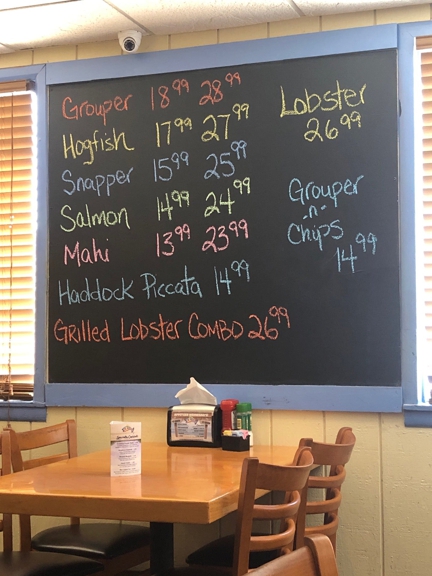 Grouper 18.99 28.99
Hogfish 17.99 27.99
Snapper 15.99 25.99
Salmon 14.99 24.99
Mahi 13.99 23.99
Haddock Piccata 14.99
Grilled Lobster Combo 26.99
Lobster
26.99
Grouper
-n-
Chips
14.99